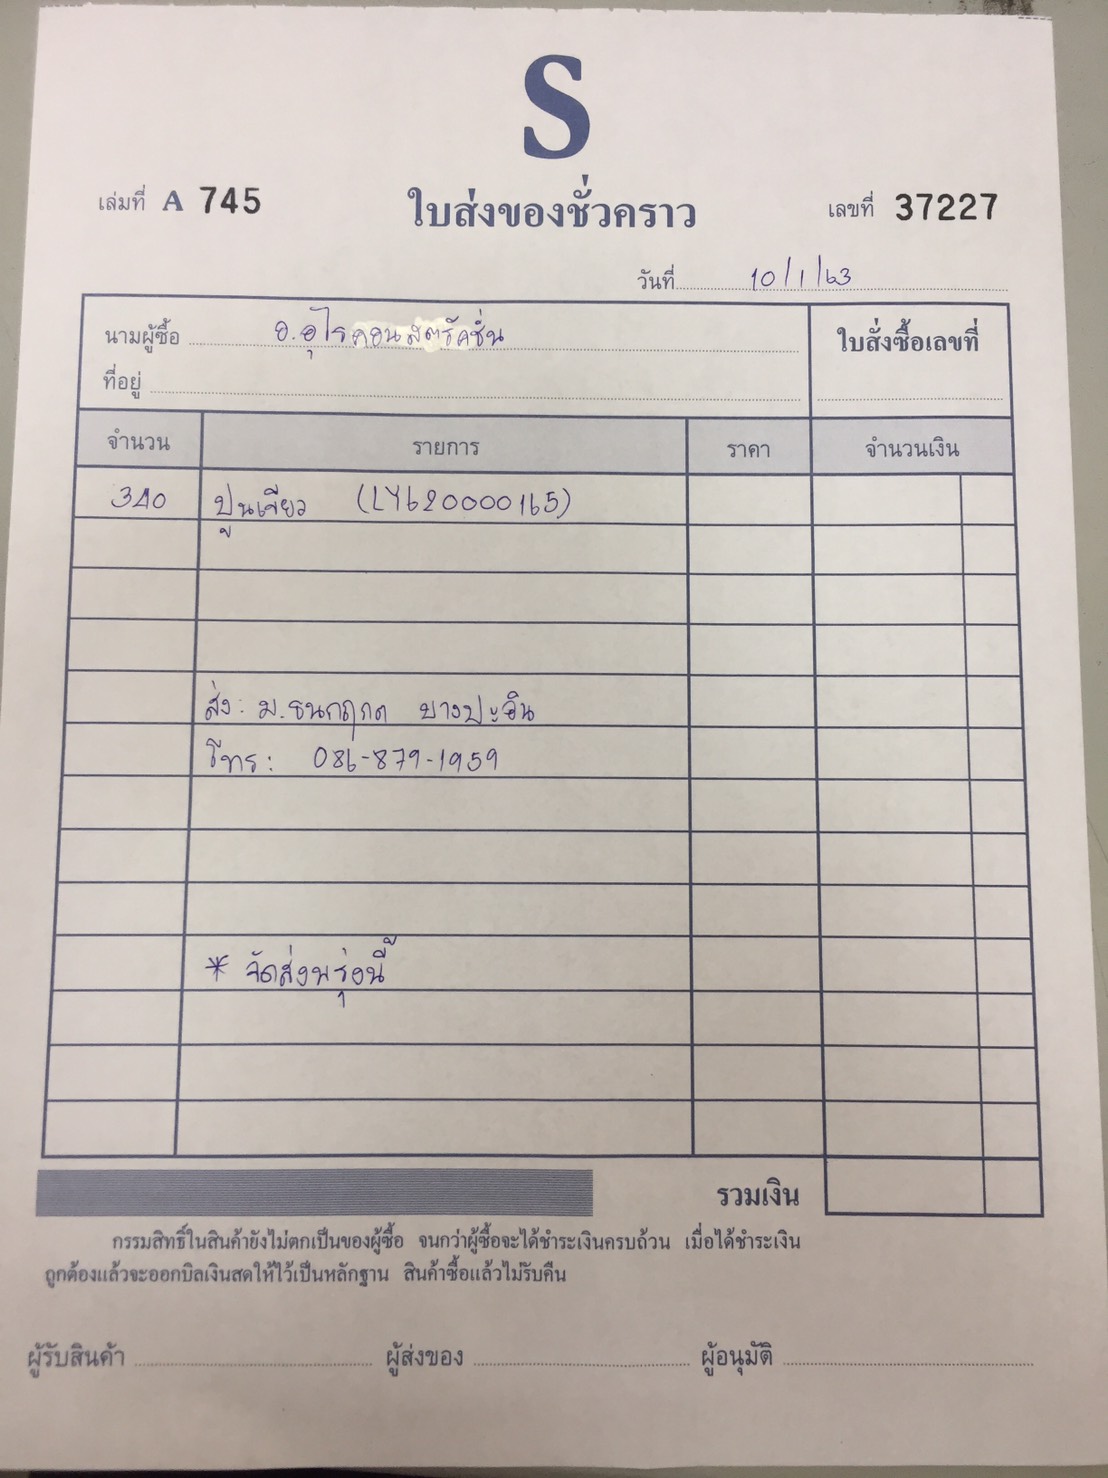 S
เล่มที่ A 745 ใบส่งของชั่วคราว เลขที่ 37227
วันที่ 10/1/63
นามผู้ซื้อ อ.อุไรคอนสตรัคชั่น ใบสั่งซื้อเลขที่
ที่อยู่
จำนวน รายการ ราคา จำนวนเงิน
340 ปูนเขียว (LY620000165)
ส่ง: ม.ธนกฤกด บางปะอิน
โทร: 086-879-1959
* จัดส่งพรุ่งนี้
รวมเงิน
กรรมสิทธิ์ในสินค้ายังไม่ตกเป็นของผู้ซื้อ จนกว่าผู้ซื้อจะได้ชำระเงินครบถ้วน เมื่อได้ชำระเงิน
ถูกต้องแล้วจะออกบิลเงินสดให้ไว้เป็นหลักฐาน สินค้าซื้อแล้วไม่รับคืน
ผู้รับสินค้า ผู้ส่งของ ผู้อนุมัติ